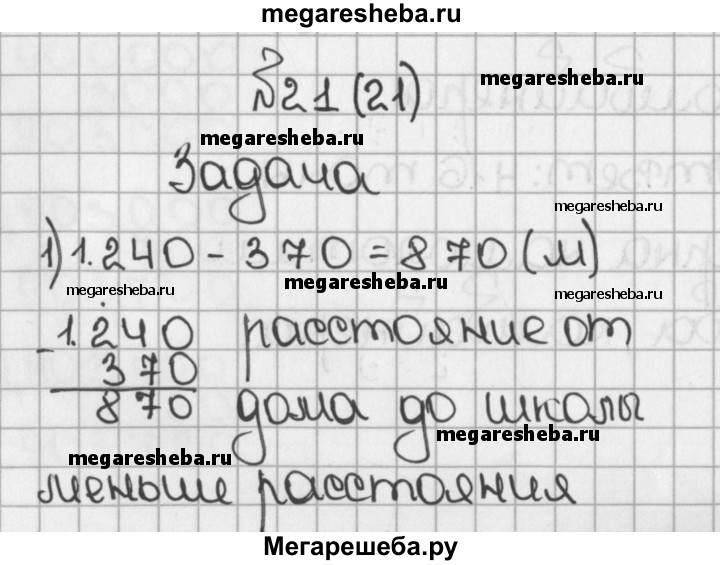 megaresheba.ru
№21 (21)
megaresheba.ru
megaresheba.ru
Задача
megaresheba.ru
1) 1.240 - 370 = 870 (м)
megaresheba.ru
megaresheba.ru
megaresheba.ru
1.240 расстояние от
- 370
870 дома до школы
megaresheba.ru
megaresheba.ru
меньше расстояния
Мегарешеба.ру